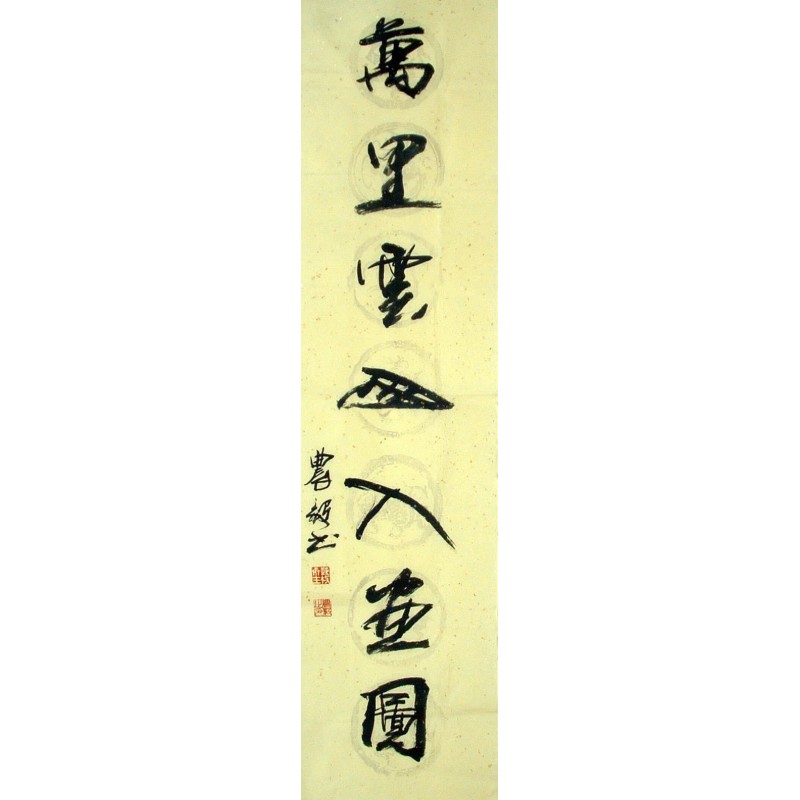 萬里雲山入畫圖
農毅书